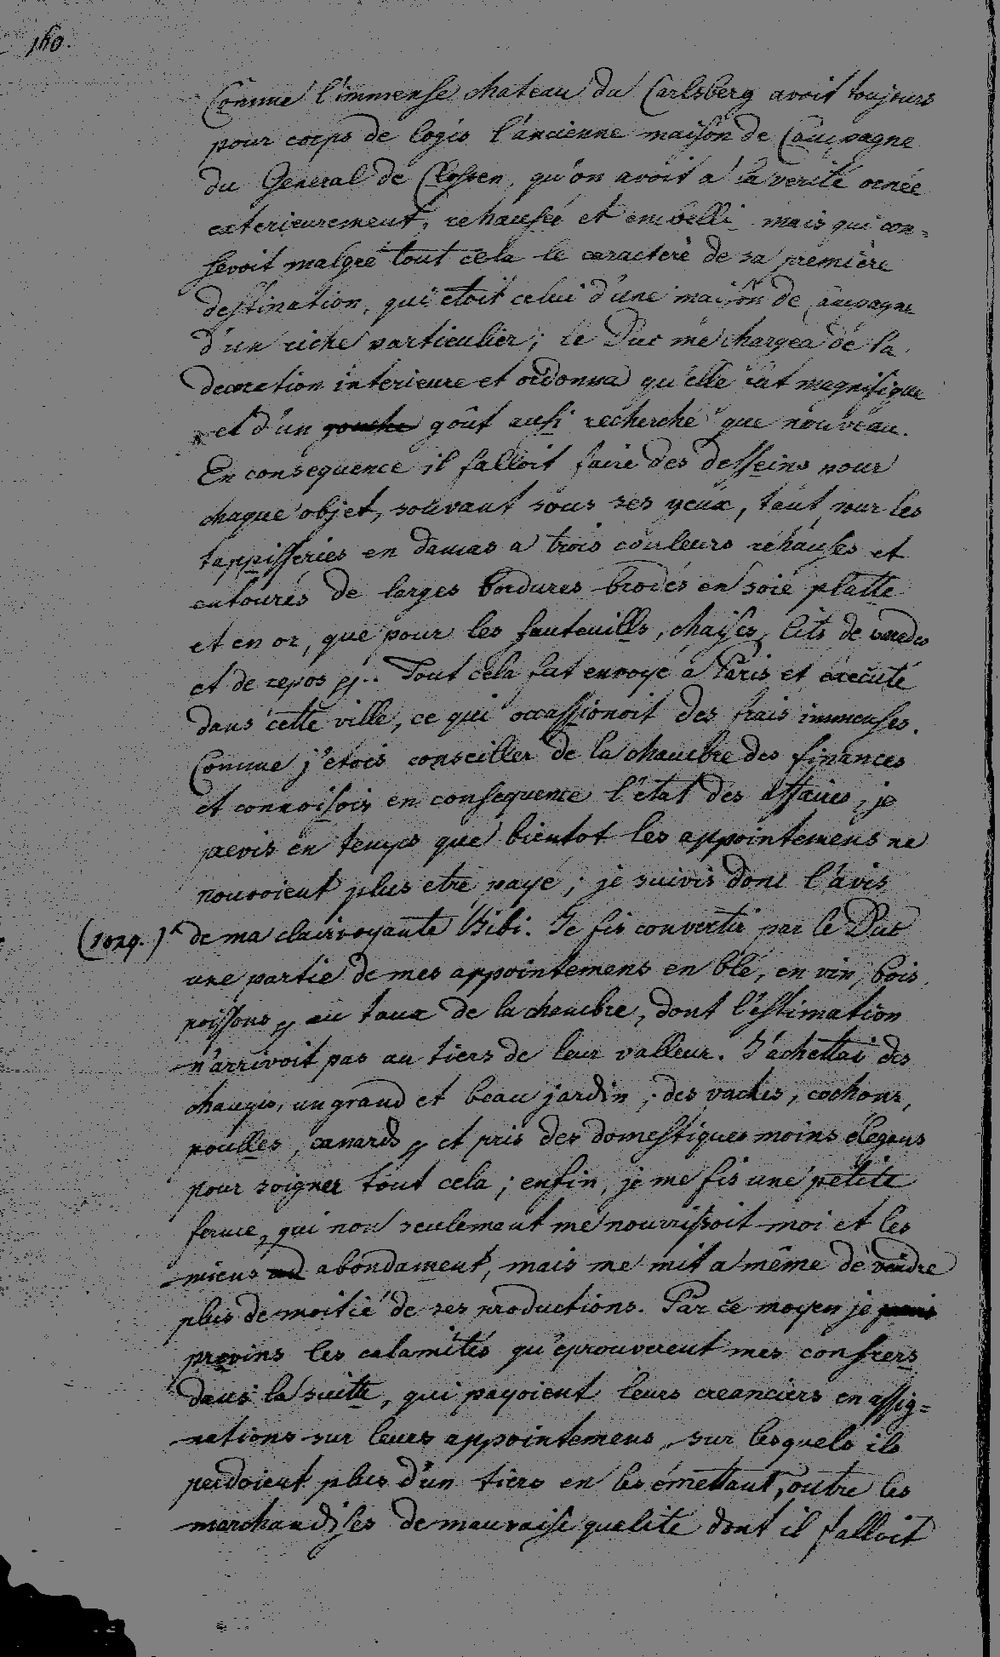 160.
Comme l'immense chateau du Carlsberg avoit toujours
pour corps de logis l'ancienne maison de Campagne
du General de Clossen, qu'on avoit a la verité ornée
exterieurement, rehaussé et embelli mais qui con=
servoit malgré tout cela le caractere de sa première
destination, qui etoit celui d'une maison de campagne
d'un riche particulier; le Duc me chargea de la
decoration interieure et ordonna qu'elle fut magnifique
et d'un gouche goût aussi recherché que nouveau.
En consequence il falloit faire des desseins pour
chaque objet, souvant sous ses yeux, tant pour les
tappisseries en damas a trois couleurs rehausés et
entourés de larges bordures brodés en soie platte
et en or, que pour les fauteuills, chaises, lits de
et de repos. Tout cela fut envoyé a Paris et éxecuté
dans cette ville, ce qui occassionoit des frais immenses.
Comme j'etois conseiller de la chambre des finances
et connoisois en consequence l'etat des affaires, je
previs en temps que bientot les appointemens ne
pouvoient plus etre payé; je suivis donc l'avis
(1029.) de ma clairvoyante Bibi. Je fis convertir par le Duc
une partie de mes appointemens en blé, en vin, bois,
poissons au taux de la chambre, dont l'estimation
n'arrivoit pas au tiers de leur valleur. J'achettai des
champs, un grand et beau jardin; des vaches, cochons,
poulles, canards et pris des domestiques moins elegans
pour soigner tout cela; enfin, je me fis une petite
ferme, qui non seulement me nourrissoit moi et les
miens abondament, mais me mit a même de vendre
plus de moitié de ses productions. Par ce moyen je
previns les calamités qu'éprouverent mes confrers
dans la suitte, qui payoient leurs creanciers en assig=
nations sur leurs appointemens, sur lesquels ils
perdoient plus d'un tiers en les émettant, outre les
marchandises de mauvaise qualité dont il falloit